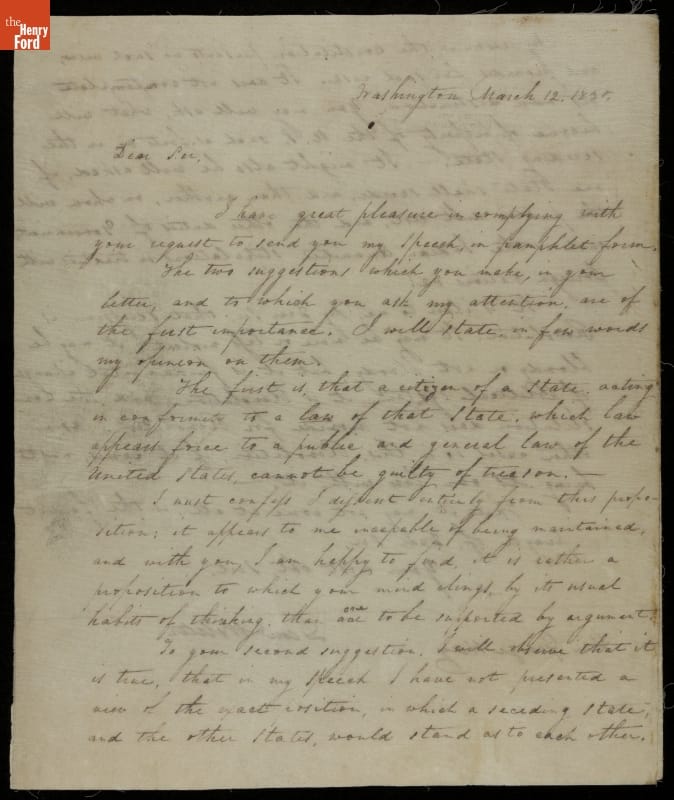 the
Henry
Ford
Washington March 12. 1830.
Dear Sir,
I have great pleasure in complying with
your request to send you my speech, in pamphlet form.
The two suggestions which you make, in your
letter, and to which you ask my attention, are of
the first importance. I will state, in few words
my opinion on them.
The first is, that a citizen of a State, acting
in conformity to a law of that State, which law
opposes force to a public and general law of the
United States, cannot be guilty of treason.—
I must confess I dissent entirely from this propo-
sition; it appears to me incapable of being maintained,
and with you, I am happy to find, it is rather a
proposition to which your mind clings, by its usual
habits of thinking, than one to be supported by argument.
To your second suggestion, I will observe that it
is true, that in my speech I have not presented a
view of the exact position, in which a seceding State,
and the other States, would stand as to each other.